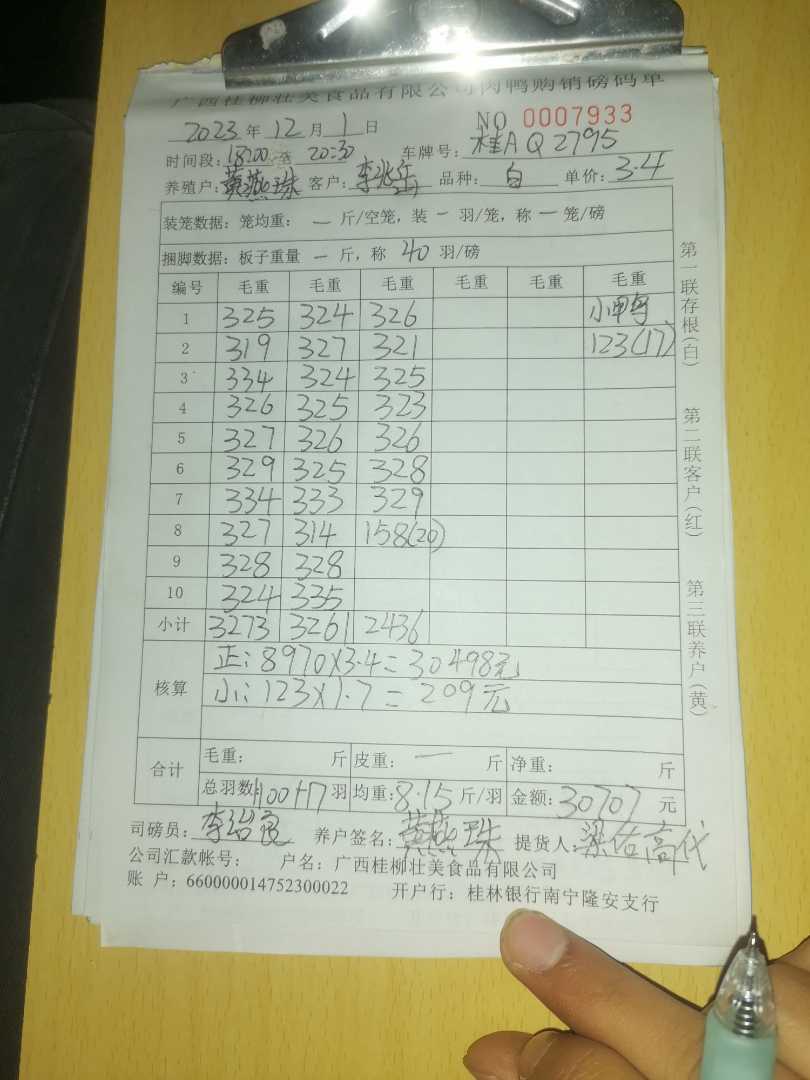 广西桂柳壮美食品有限公司肉鸭购销磅码单
NO 0007933
2023年 12月 1日
时间段:18:00至 20:30 车牌号:桂AQ2795
养殖户:黄燕珠 客户:李兆年 品种:白 单价:3.4
装笼数据:笼均重: — 斤/空笼,装 — 羽/笼,称 — 笼/磅
捆脚数据:板子重量 — 斤,称 40 羽/磅
编号 毛重 毛重 毛重 毛重 毛重 毛重
1 325 324 326 小甲鸟
2 319 327 321 123(17)
3 334 324 325
4 326 325 323
5 327 326 326
6 329 325 328
7 334 333 329
8 327 314 158(20)
9 328 328
10 324 335
小计 3273 3261 2436
核算 正:8970×3.4=30498元
小:123×1.7=209元
合计 毛重: 斤 皮重: — 斤 净重: 斤
总羽数:1100+17羽 均重:8.15斤/羽 金额:30707元
司磅员:李绍良 养户签名:黄燕珠 提货人:梁佑高代
公司汇款帐号: 户名:广西桂柳壮美食品有限公司
账 户:660000014752300022 开户行:桂林银行南宁隆安支行
第一联存根(白)
第二联客户(红)
第三联养户(黄)